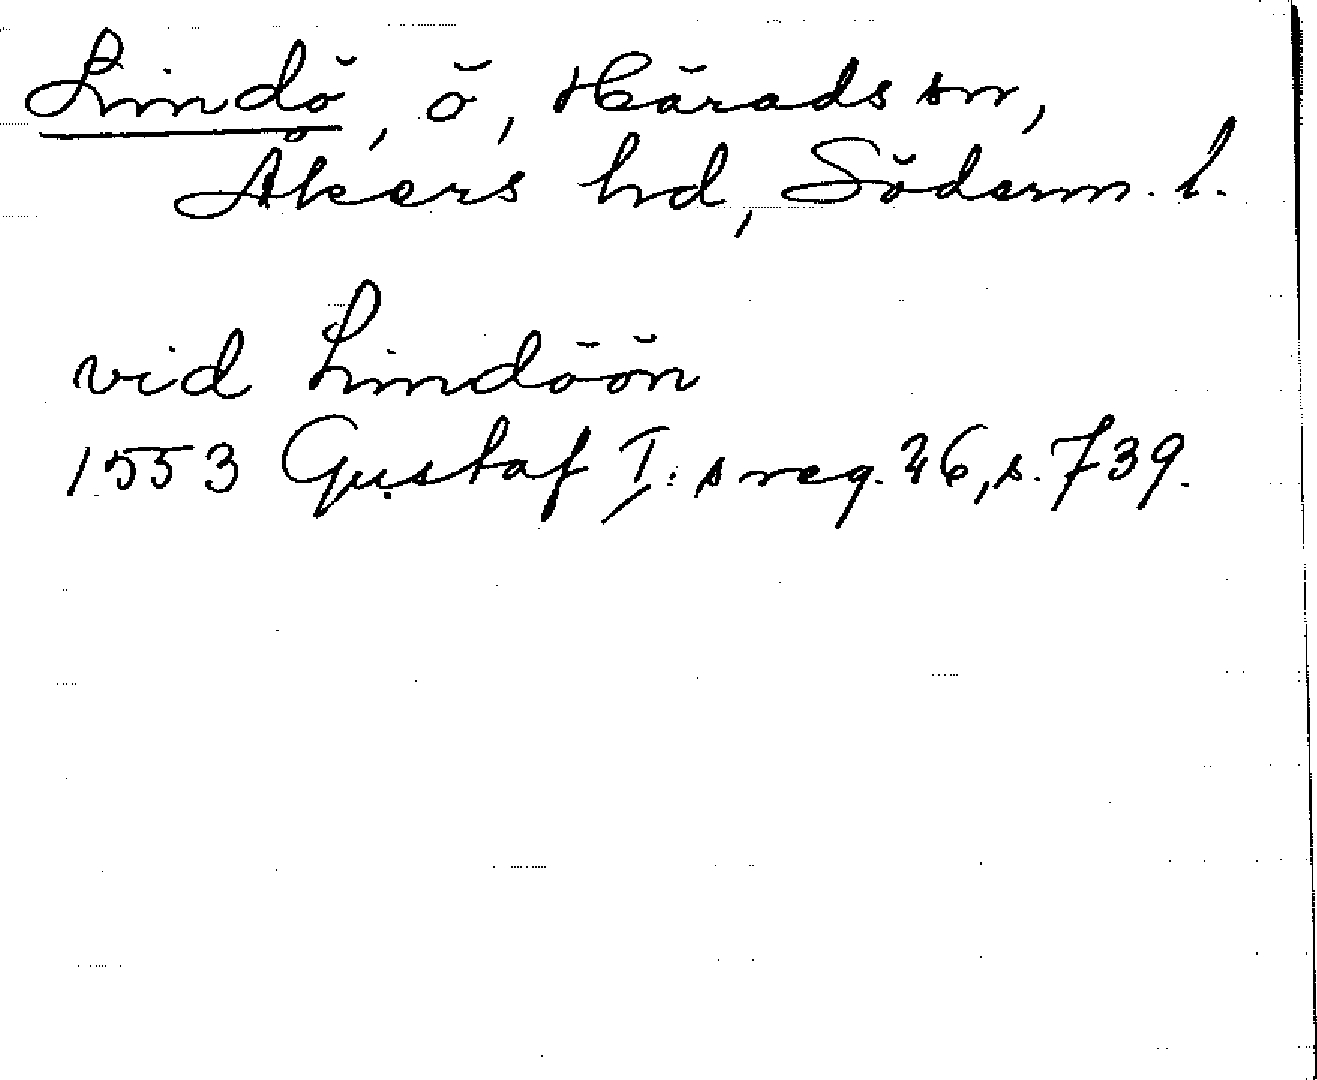 Lindö, ö, Härads sn,
Åkers hd, Söderm. l.
vid Lindöön
1553 Gustaf I:s reg. 26, s. 739.